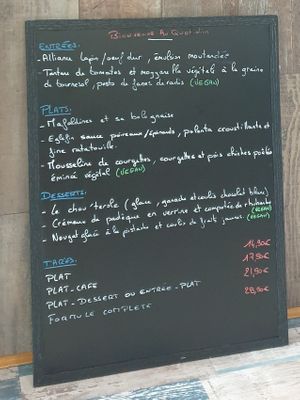 Bienvenue Au Quotidien
ENTRÉES.
- Alliance lapin/oeuf dur, émulsion moutardée
- Tartare de tomates et mozzarella végétale à la graine
de tournesol, pesto de fanes de radis (VEGAN)
PLATS.
- Mafaldines et sa bolognaise
- Eglefin sauce poireaux/épinards, polenta croustillante et
fine ratatouille.
- Mousseline de courgettes, courgettes et pois chiches poêlés
émincé végétal (VEGAN)
DESSERTS.
- Le chou (glace, ganache et coulis chocolat blanc)
- Crémeux de en verrine et compotée de rhubarbe
(VEGAN)
- Nougat glacé à la pistache et coulis de fruits jaunes (VEGAN)
TARIFS.
PLAT 14,90€
PLAT-CAFE 17,50€
PLAT-DESSERT OU ENTRÉE-PLAT 21,90€
FORMULE COMPLETE 28,90€